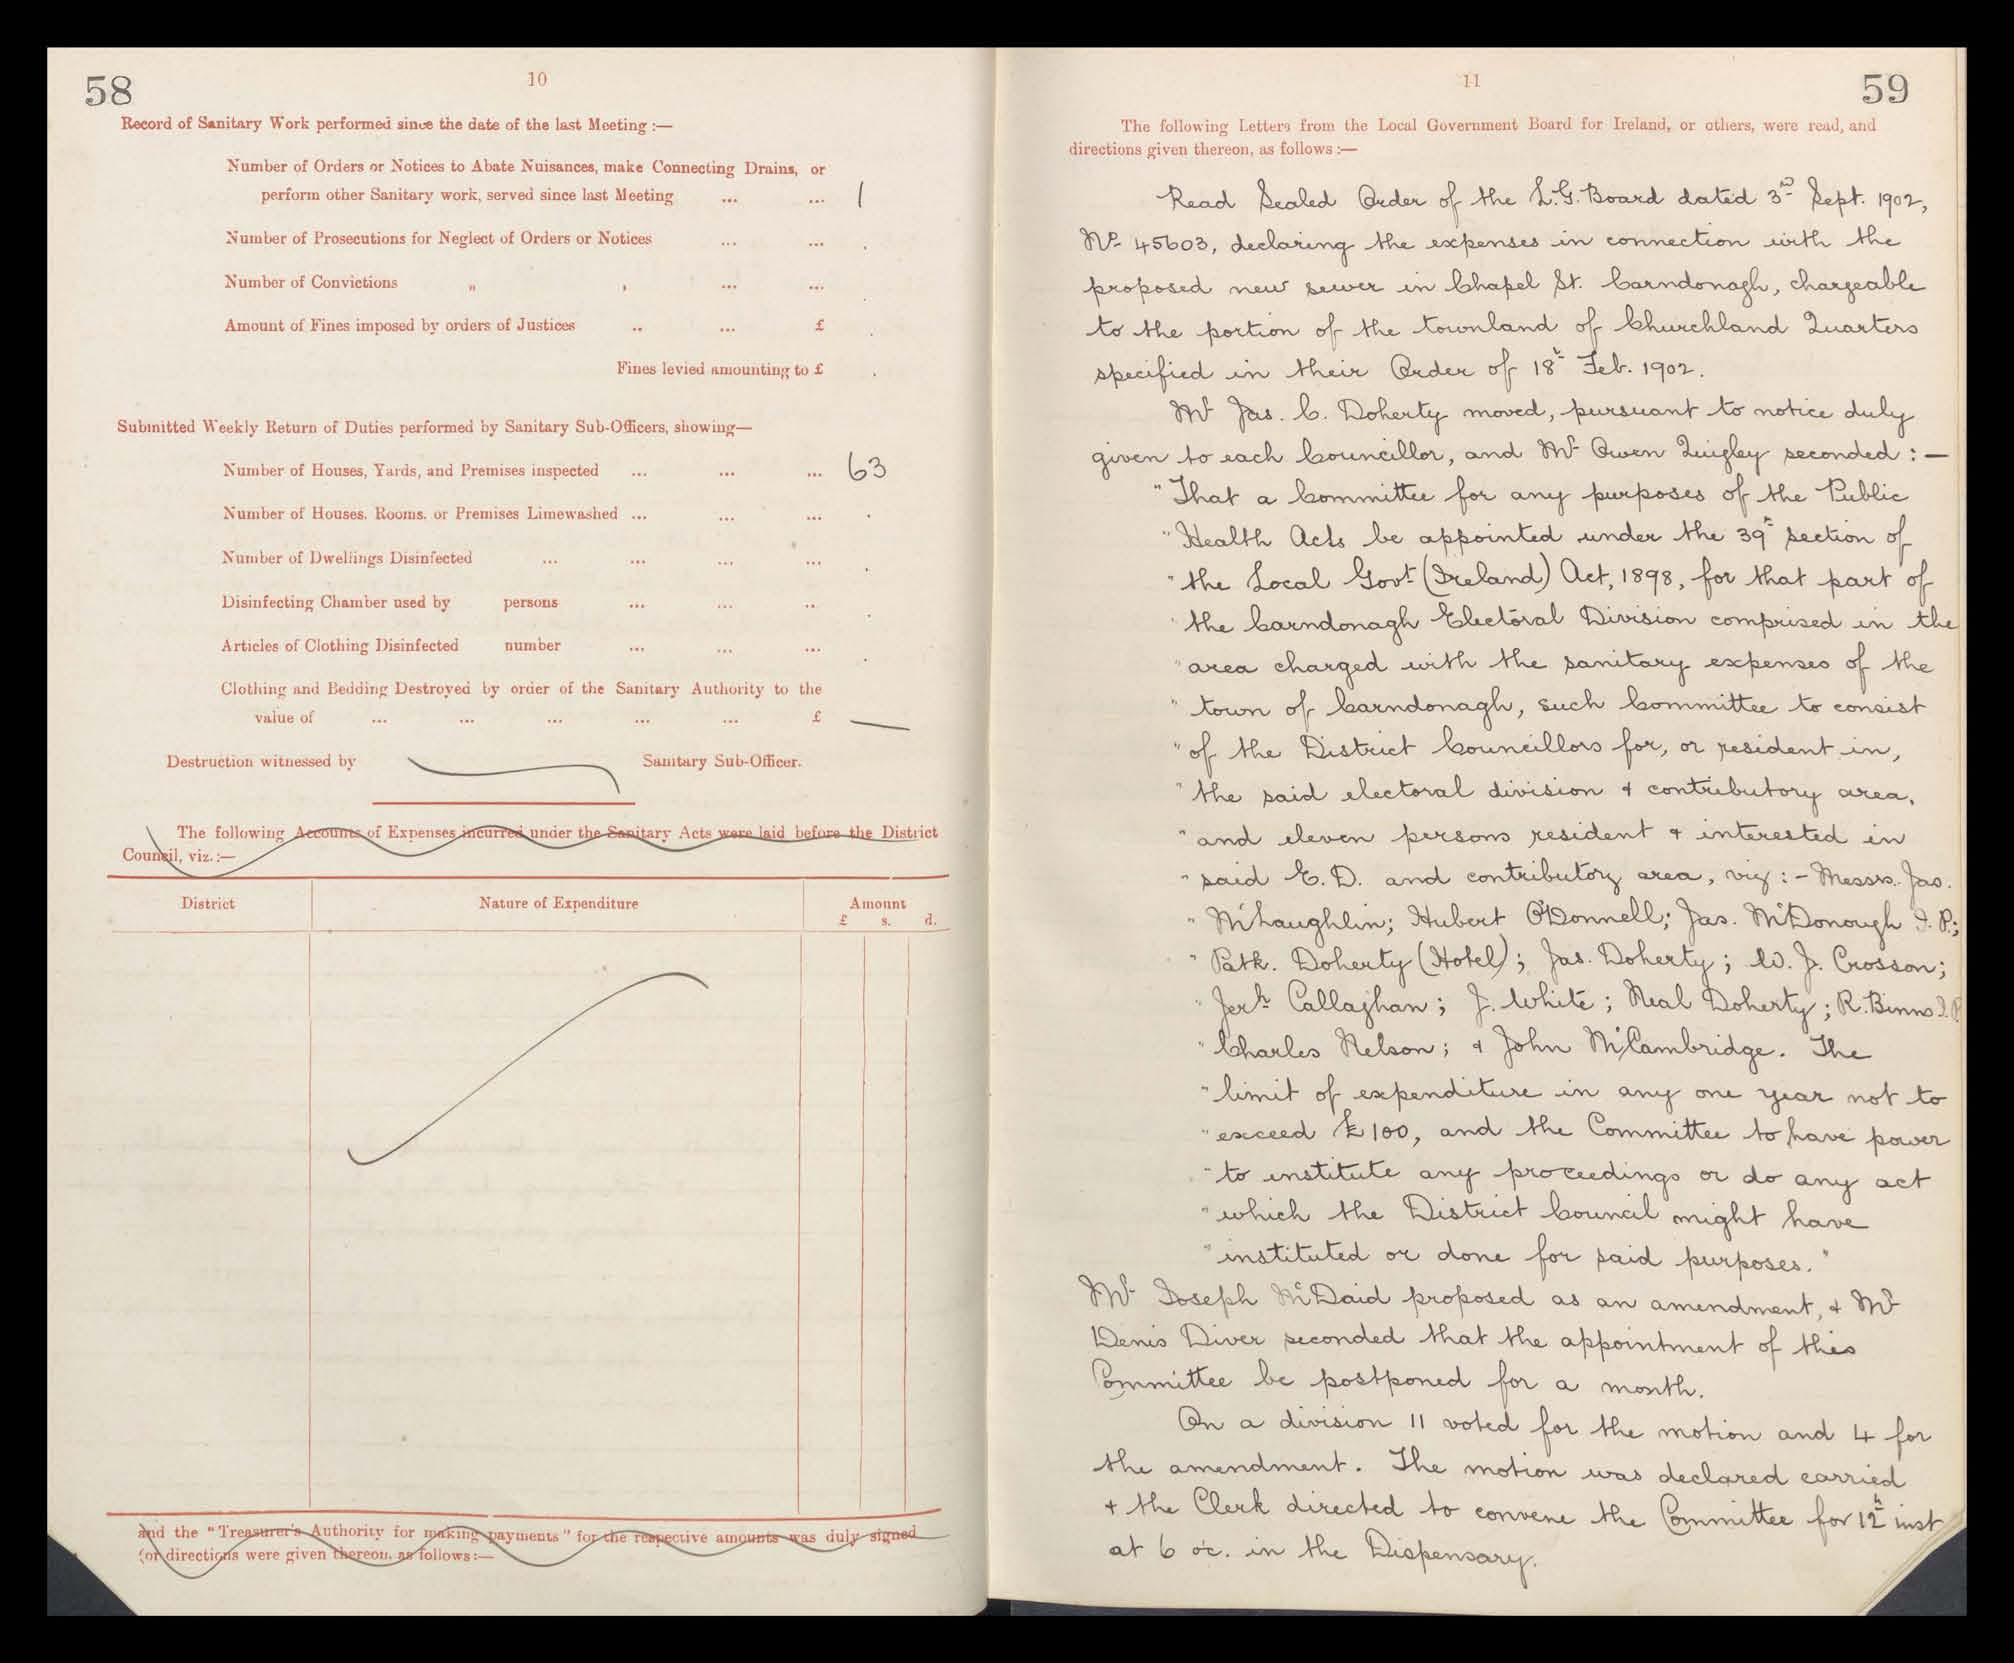 58
10
Record of Sanitary Work performed since the date of the last Meeting :—
Number of Orders or Notices to Abate Nuisances, make Connecting Drains, or
perform other Sanitary work, served since last Meeting ... ... 1
Number of Prosecutions for Neglect of Orders or Notices ... ... .
Number of Convictions „ , ... ... .
Amount of Fines imposed by orders of Justices .. ... £ .
Fines levied amounting to £ .
Submitted Weekly Return of Duties performed by Sanitary Sub-Officers, showing—
Number of Houses, Yards, and Premises inspected ... ... ... 63
Number of Houses, Rooms, or Premises Limewashed ... ... ... .
Number of Dwellings Disinfected ... ... ... ... .
Disinfecting Chamber used by persons ... ... .. .
Articles of Clothing Disinfected number ... ... ... .
Clothing and Bedding Destroyed by order of the Sanitary Authority to the
value of ... ... ... ... ... £ —
Destruction witnessed by Sanitary Sub-Officer.
The following Accounts of Expenses incurred under the Sanitary Acts were laid before the District
Council, viz. :—
District Nature of Expenditure Amount
£ s. d.
and the "Treasurer's Authority for making payments" for the respective amounts was duly signed
(or directions were given thereon, as follows :—
11
59
The following Letters from the Local Government Board for Ireland, or others, were read, and
directions given thereon, as follows :—
Read Sealed Order of the L.G. Board dated 3rd Sept. 1902,
No 45603, declaring the expenses in connection with the
proposed new sewer in Chapel St. Carndonagh, chargeable
to the portion of the townland of Churchland Quarters
specified in their Order of 18th Feb. 1902.
Mr Jas. C. Doherty moved, pursuant to notice duly
given to each Councillor, and Mr Owen Quigley seconded : —
"That a Committee for any purposes of the Public
"Health Acts be appointed under the 39th section of
"the Local Govt (Ireland) Act, 1898, for that part of
"the Carndonagh Electoral Division comprised in the
"area charged with the sanitary expenses of the
"town of Carndonagh, such Committee to consist
"of the District Councillors for, or resident in,
"the said electoral division & contributory area,
"and eleven persons resident & interested in
"said E.D. and contributory area, viz : – Messrs. Jas.
"McLaughlin; Hubert O'Donnell; Jas. McDonough J.P.;
"Patk. Doherty (Hotel); Jas. Doherty; W. J. Crosson;
"Jerh Callaghan; J. White; Neal Doherty; R. Binns J.P.
"Charles Nelson; & John McCambridge. The
"limit of expenditure in any one year not to
"exceed £100, and the Committee to have power
"to institute any proceedings or do any act
"which the District Council might have
"instituted or done for said purposes."
Mr Joseph McDaid proposed as an amendment, & Mr
Denis Diver seconded that the appointment of this
Committee be postponed for a month.
On a division 11 voted for the motion and 4 for
the amendment. The motion was declared carried
& the Clerk directed to convene the Committee for 12th inst
at 6 o'c. in the Dispensary.